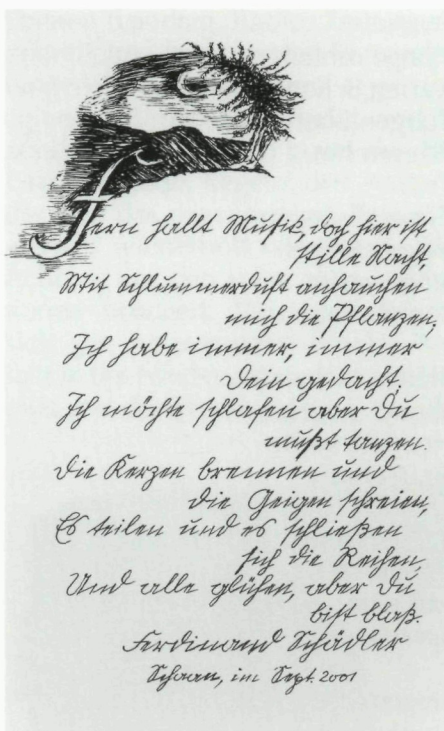 Fern hallt Musik, doch hier ist
stille Nacht,
Mit Schlummerduft anhauchen
mich die Pflanzen,
Ich habe immer, immer
Dein gedacht.
Ich möchte schlafen aber Du
mußt tanzen.
Die Kerzen brennen und
die Geigen schreien,
Es teilen und es schließen
sich die Reihen,
Und alle glühen, aber Du
bist blaß.
Ferdinand Schädler
Schaan, im Sept. 2001